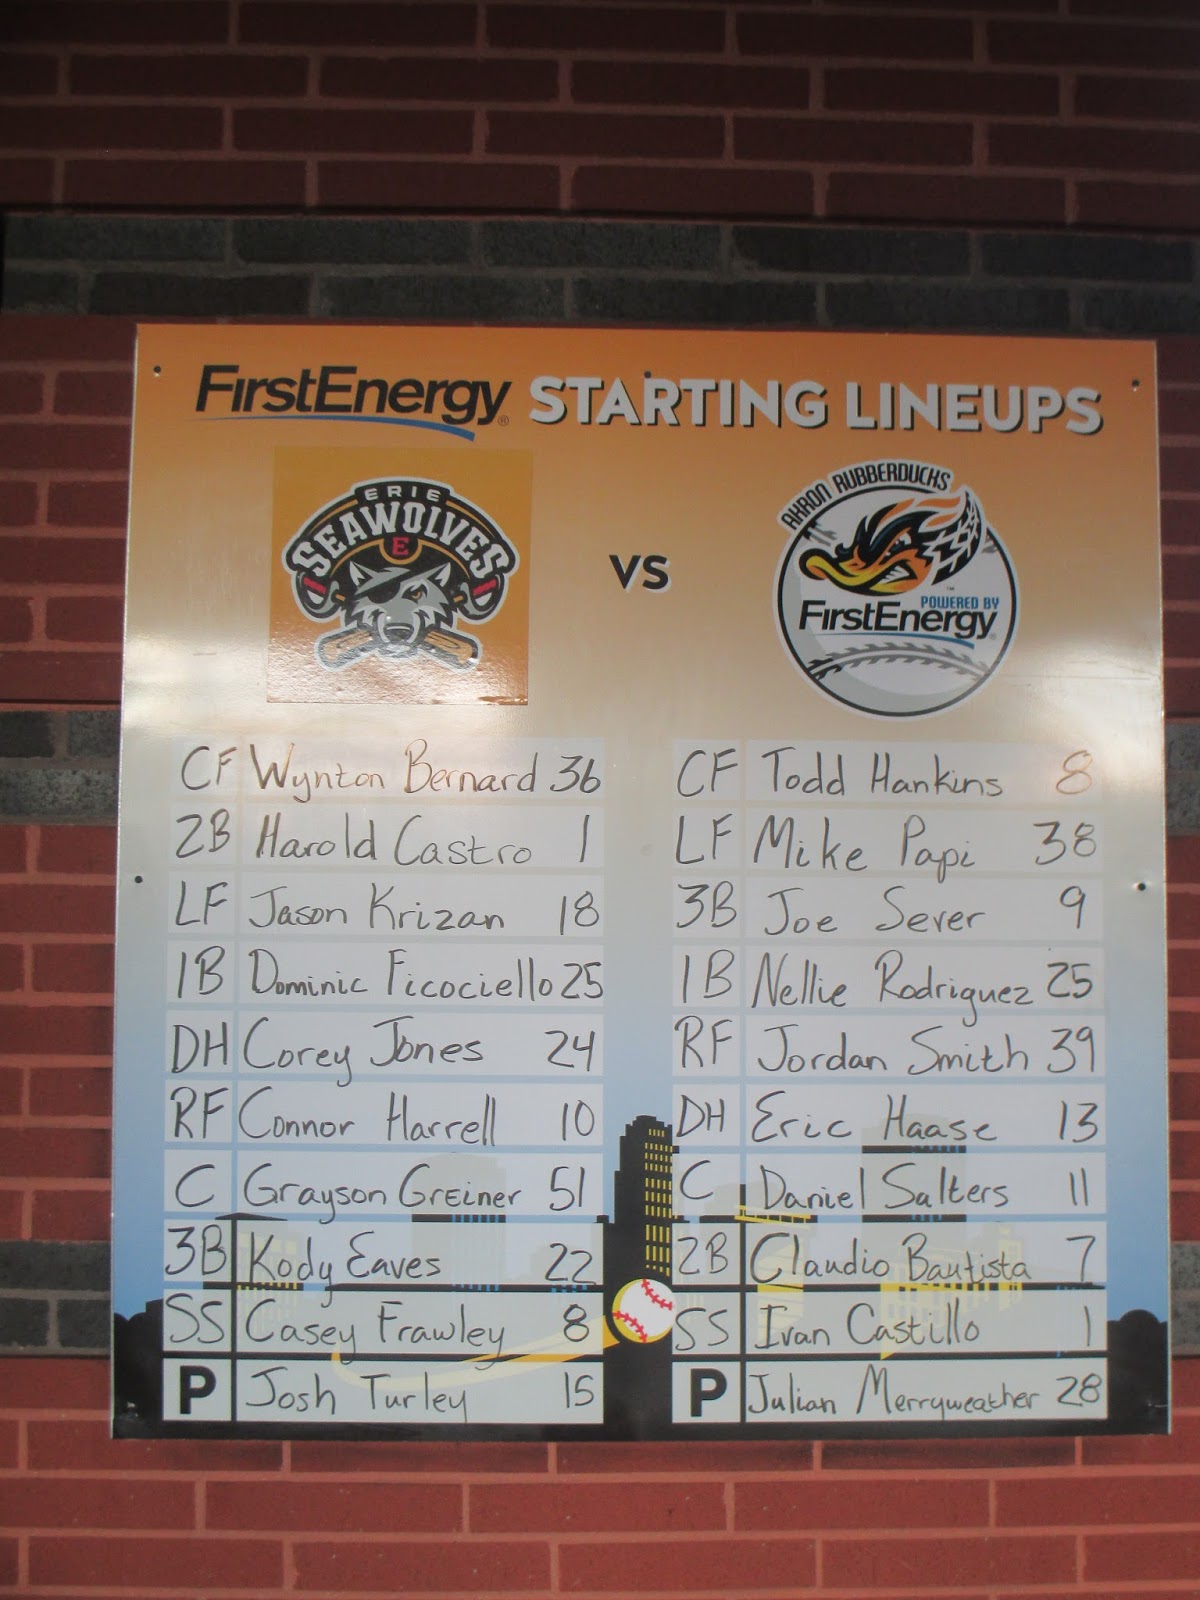 FIRSTENERGY® STARTING LINEUPS
ERIE
SEAWOLVES
E
VS
AKRON RUBBERDUCKS
™
POWERED BY
FIRSTENERGY®
CF Wynton Bernard 36
2B Harold Castro 1
LF Jason Krizan 18
1B Dominic Ficociello 25
DH Corey Jones 24
RF Connor Harrell 10
C Grayson Greiner 51
3B Kody Eaves 22
SS Casey Frawley 8
P Josh Turley 15
CF Todd Hankins 8
LF Mike Papi 38
3B Joe Sever 9
1B Nellie Rodriguez 25
RF Jordan Smith 39
DH Eric Haase 13
C Daniel Salters 11
2B Claudio Bautista 7
SS Ivan Castillo 1
P Julian Merryweather 28